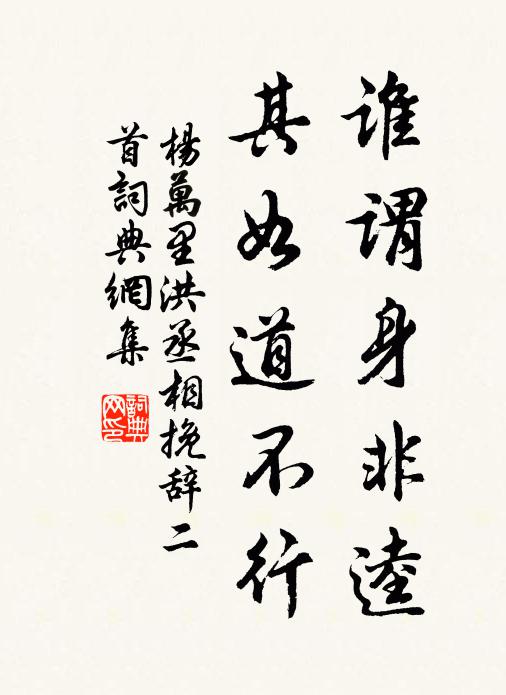 誰謂身非逵
其如道不行
楊萬里洪丞相挽辞二
首詞典網集
詞典
网印